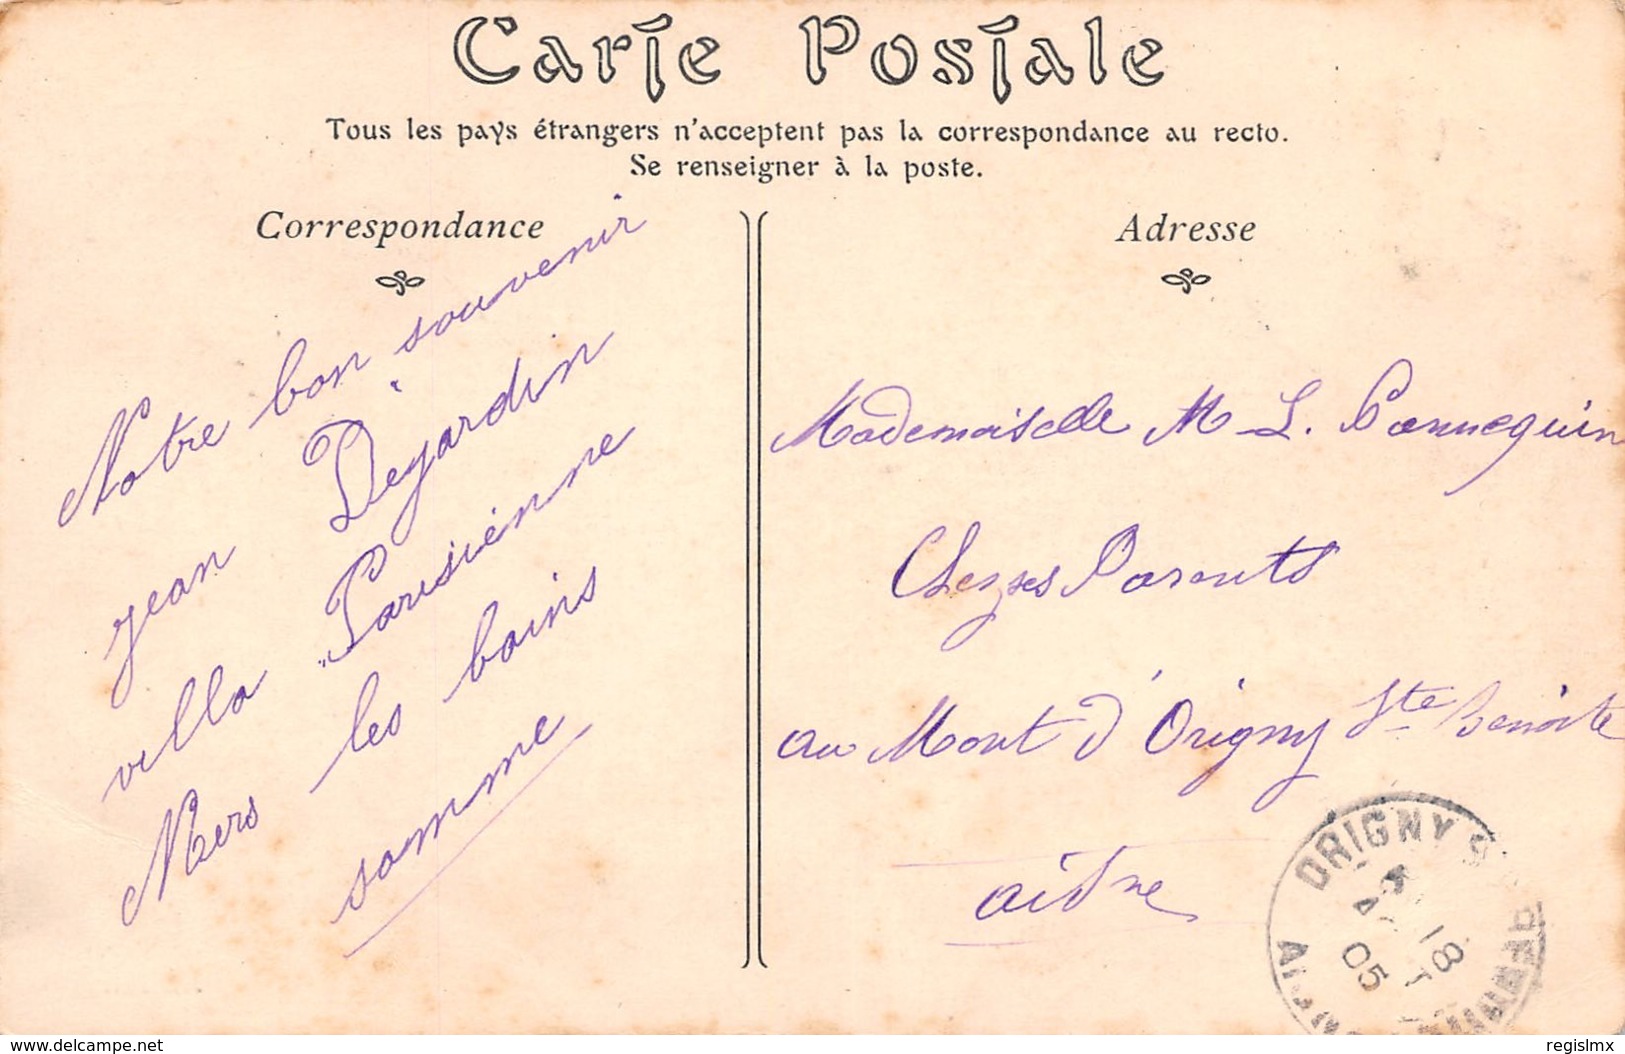 Carte Postale
Tous les pays étrangers n'acceptent pas la correspondance au recto.
Se renseigner à la poste.
Correspondance
Notre bon souvenir
Jean Dejardin
villa "Parisienne
Mers les bains
somme
Adresse
Mademoiselle M L. Cannequin
Chez ses Parents
au Mont d'Origny Ste Benoite
aisne
ORIGNY S
18
05
delcampe.net
regislmx